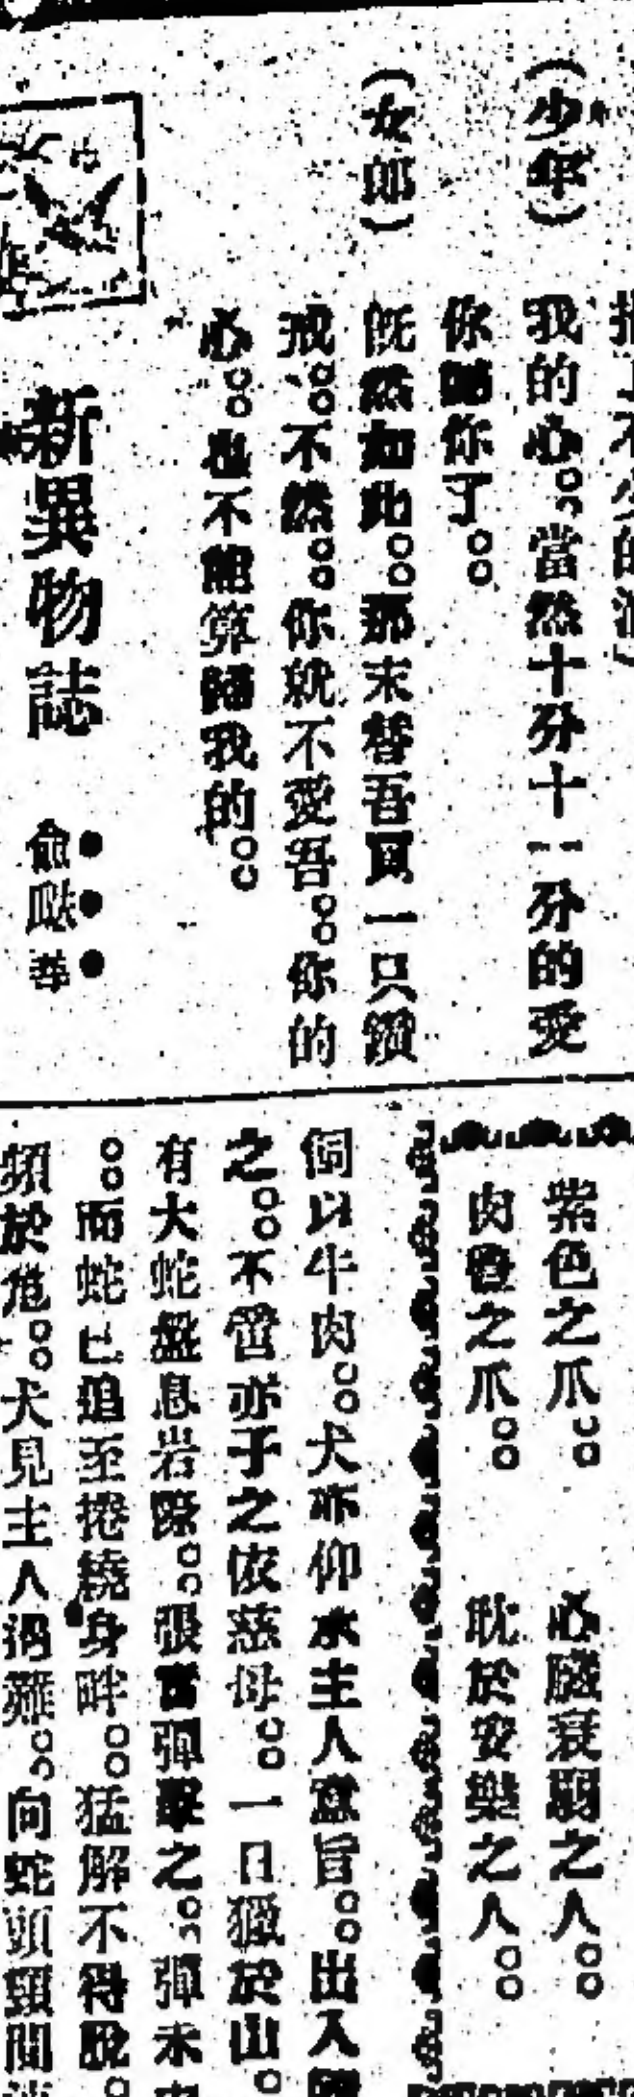 (少年)　我的心。當然十分十一分的愛
你歸你了。
(女郎)　既然如此。那末替吾買一只鑽
戒。不然。你就不愛吾。你的
心。也不能算歸我的。
新異物誌
俞
紫色之爪。　心臟衰弱之人。
肉色之爪。　耽於安樂之人。
飼以牛肉。犬亦仰承主人意旨。出入
之。不啻赤子之依慈母。一日獵於山。
有大蛇盤息岩隙。張官彈擊之。彈未
。而蛇已追至捲繞身畔。猛解不得脫。
頻於危。犬見主人遇難。向蛇頭頸間